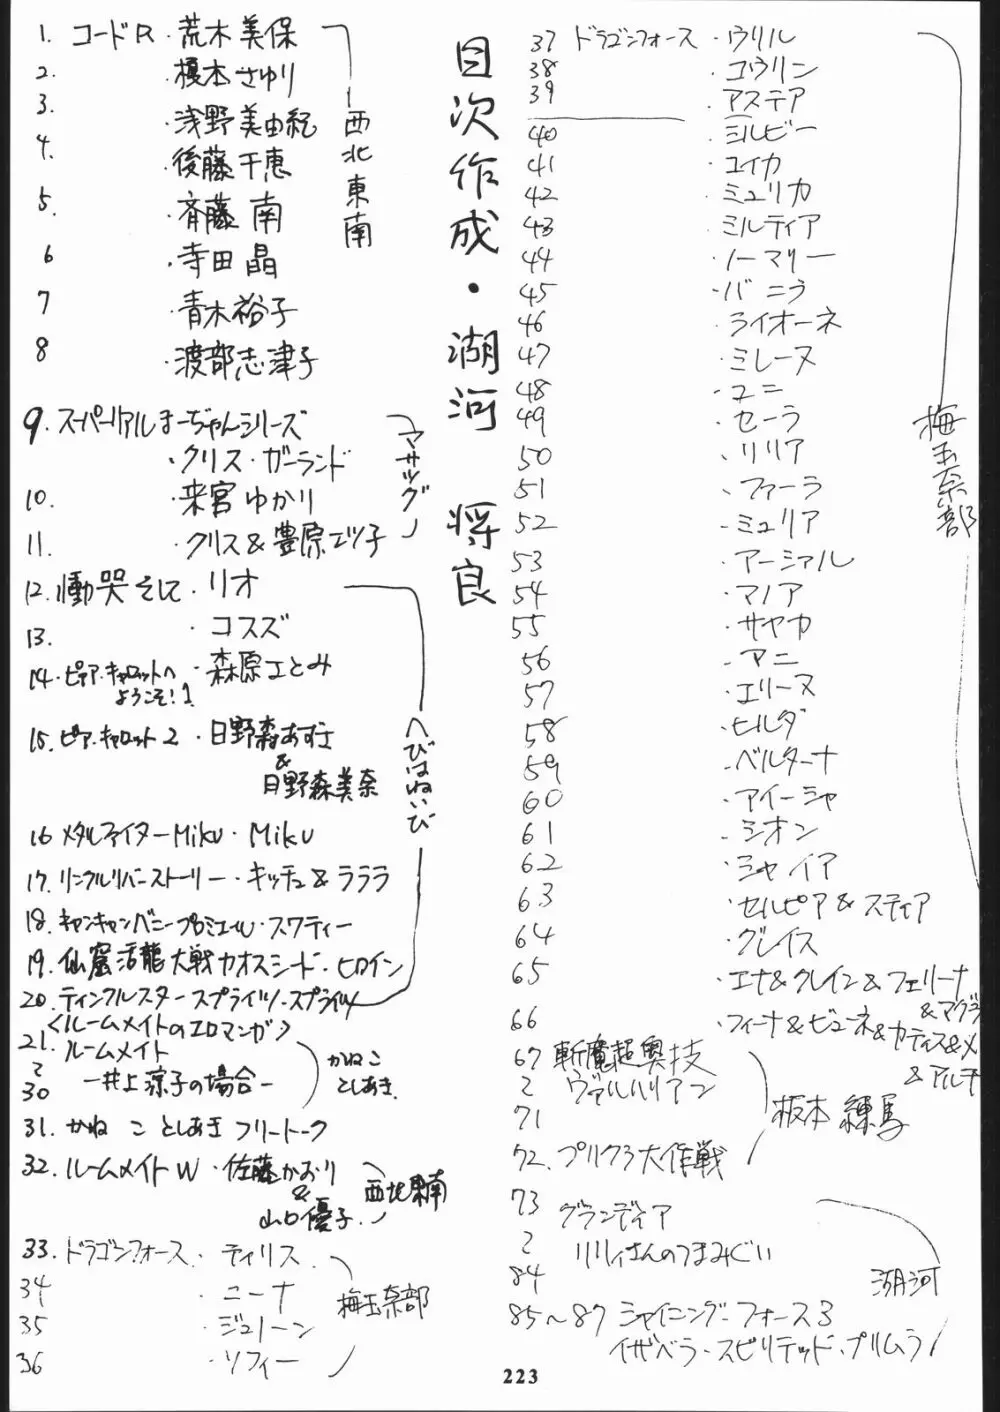 目次作成・湖河 将良
1. コードR・荒木美保
2. ・榎本さゆり
3. ・浅野美由紀
4. ・後藤千恵
5. ・斉藤南
6 ・寺田晶
7 ・青木裕子
8 ・渡部志津子
西北東南
9. スーパーリアルまーちゃんシリーズ
・クリス・ガーランド
10. ・来宮ゆかり
11. ・クリス&豊原エツ子
マサツグ
12. 慟哭そして・リオ
13. ・コスズ
14. ピア・キャロットへようこそ!!・森原さとみ
15. ピア・キャロット2・日野森あずさ
&
日野森美奈
16 メタルファイターMiku・Miku
17. リンクルリバーストーリー・キッチュ&ラララ
18. キャンキャンバニープルミエール・スワティー
19. 仙窟活龍大戦カオスシード・ヒロイン
20. ティンクルスタースプライツ・スプライツ
へびはねいび
<ルームメイトのエロマンガ>
21.
〜
30
ルームメイト
ー井上涼子の場合ー
かねこ
としあき
31. かねことしあきフリートーク
32. ルームメイトW・佐藤かおり
&
山口優子
西北東南
33. ドラゴンフォース・ティリス
34 ・ニーナ
35 ・ジュノーン
36 ・ソフィー
梅玉奈部
37 ドラゴンフォース・ウリル
38 ・コウリン
39 ・アステア
40 ・シルビー
41 ・ユイカ
42 ・ミュリカ
43 ・ミルティア
44 ・ノーマリー
45 ・バニラ
46 ・ライオーネ
47 ・ミレーヌ
48 ・ユニ
49 ・セーラ
50 ・リリア
51 ・ファーラ
52 ・ミュリア
53 ・アーシァル
54 ・マノア
55 ・サヤカ
56 ・アニ
57 ・エリーヌ
58 ・ヒルダ
59 ・ベルターナ
60 ・アイーシャ
61 ・シオン
62 ・シャイア
63 ・セルピア&スティア
64 ・グレイス
65 ・エナ&クレイン&フェリーナ
&マグラ
66 ・フィーナ&ビューネ&カティス&メ
&アルナ
梅玉奈部
67
〜
71
斬魔超奥技
ヴァルハリアン
72. プリクラ大作戦
板本練馬
73
〜
84
グランディア
リリィさんのつまみぐい
85〜87 シャイニング・フォース3
イザベラ・スピリテッド・プリムラ
湖河
223